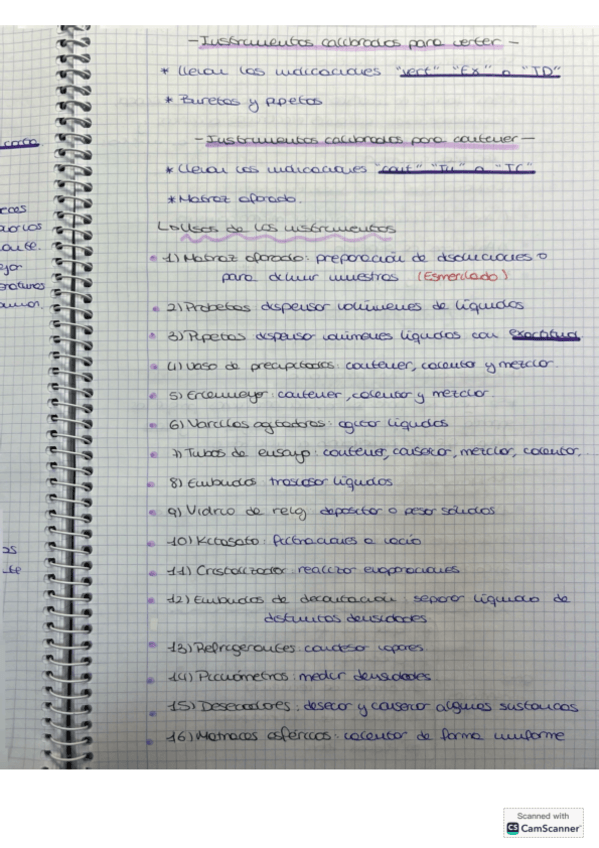 -Instrumentos calibrados para verter-
* Llevan las indicaciones "vert" "Ex" o "TD"
* Buretas y pipetas
-Instrumentos calibrados para contener-
* Llevan las indicaciones "cont" "In" o "TC"
* Matraz aforado.
Usos de los instrumentos
1) Matraz aforado: preparación de disoluciones o
para diluir muestras (Esmerilado)
2) Probetas dispensar volúmenes de líquidos
3) Pipetas dispensar volúmenes líquidos con exactitud
4) Vaso de precipitados: contener, calentar y mezclar.
5) Erlenmeyer: contener, calentar y mezclar.
6) Varillas agitadoras: agitar líquidos
7) Tubos de ensayo: contener, conservar, mezclar, calentar.
8) Embudos trasvasar líquidos
9) Vidrio de reloj depositar o pesar sólidos
10) Kitasato: filtraciones a vacío
11) Cristalizador: realizar evaporaciones
12) Embudos de decantación: separar líquidos de
distintas densidades
13) Refrigerantes: condensar vapores
14) Picnómetros: medir densidades
15) Desecadores: desecar y conservar algunas sustancias
16) Matraces esféricos: calentar de forma uniforme
Scanned with
CS CamScanner